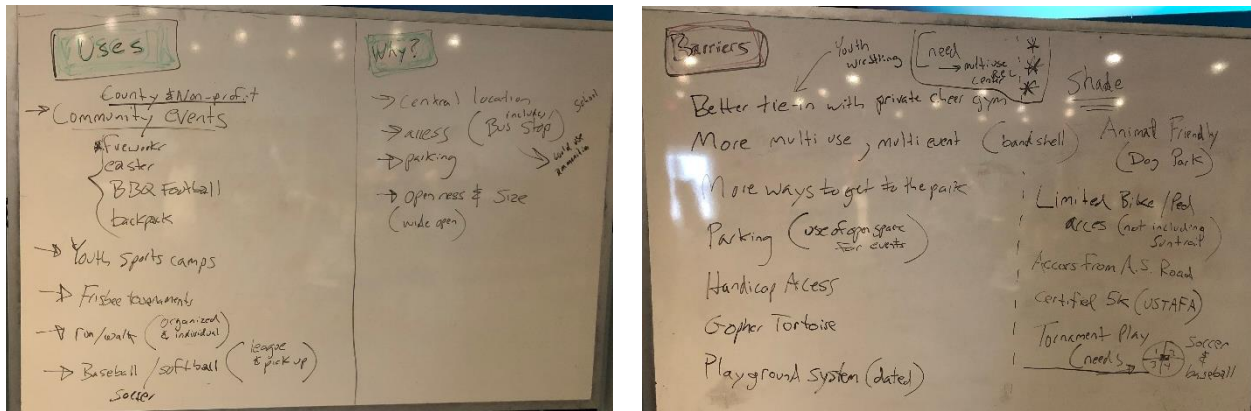 Uses
County & Non-profit
Community events
fireworks
easter
BBQ Football
backpack
Youth Sports camps
Frisbee tournaments
run/walk (organized & individual)
Baseball/softball (league & pick up)
Soccer
Why?
Central location
access (includes Bus Stop)
School
would use
parking
Openness & Size
(wide open)
Barriers
Youth wrestling
need
multiuse
rec.
center
Shade
Better tie-in with private cheer gym
More multi use, multi event (bandshell)
More ways to get to the park
Parking (use of open space for events)
Handicap Access
Gopher Tortoise
Playground System (dated)
Animal Friendly
(Dog Park)
Limited Bike/Ped
acces (not including Suntrail)
Access from A.S. Road
Certified 5k (USTAFA)
Tornament Play
(needs
1 2
3 4
soccer
&
baseball